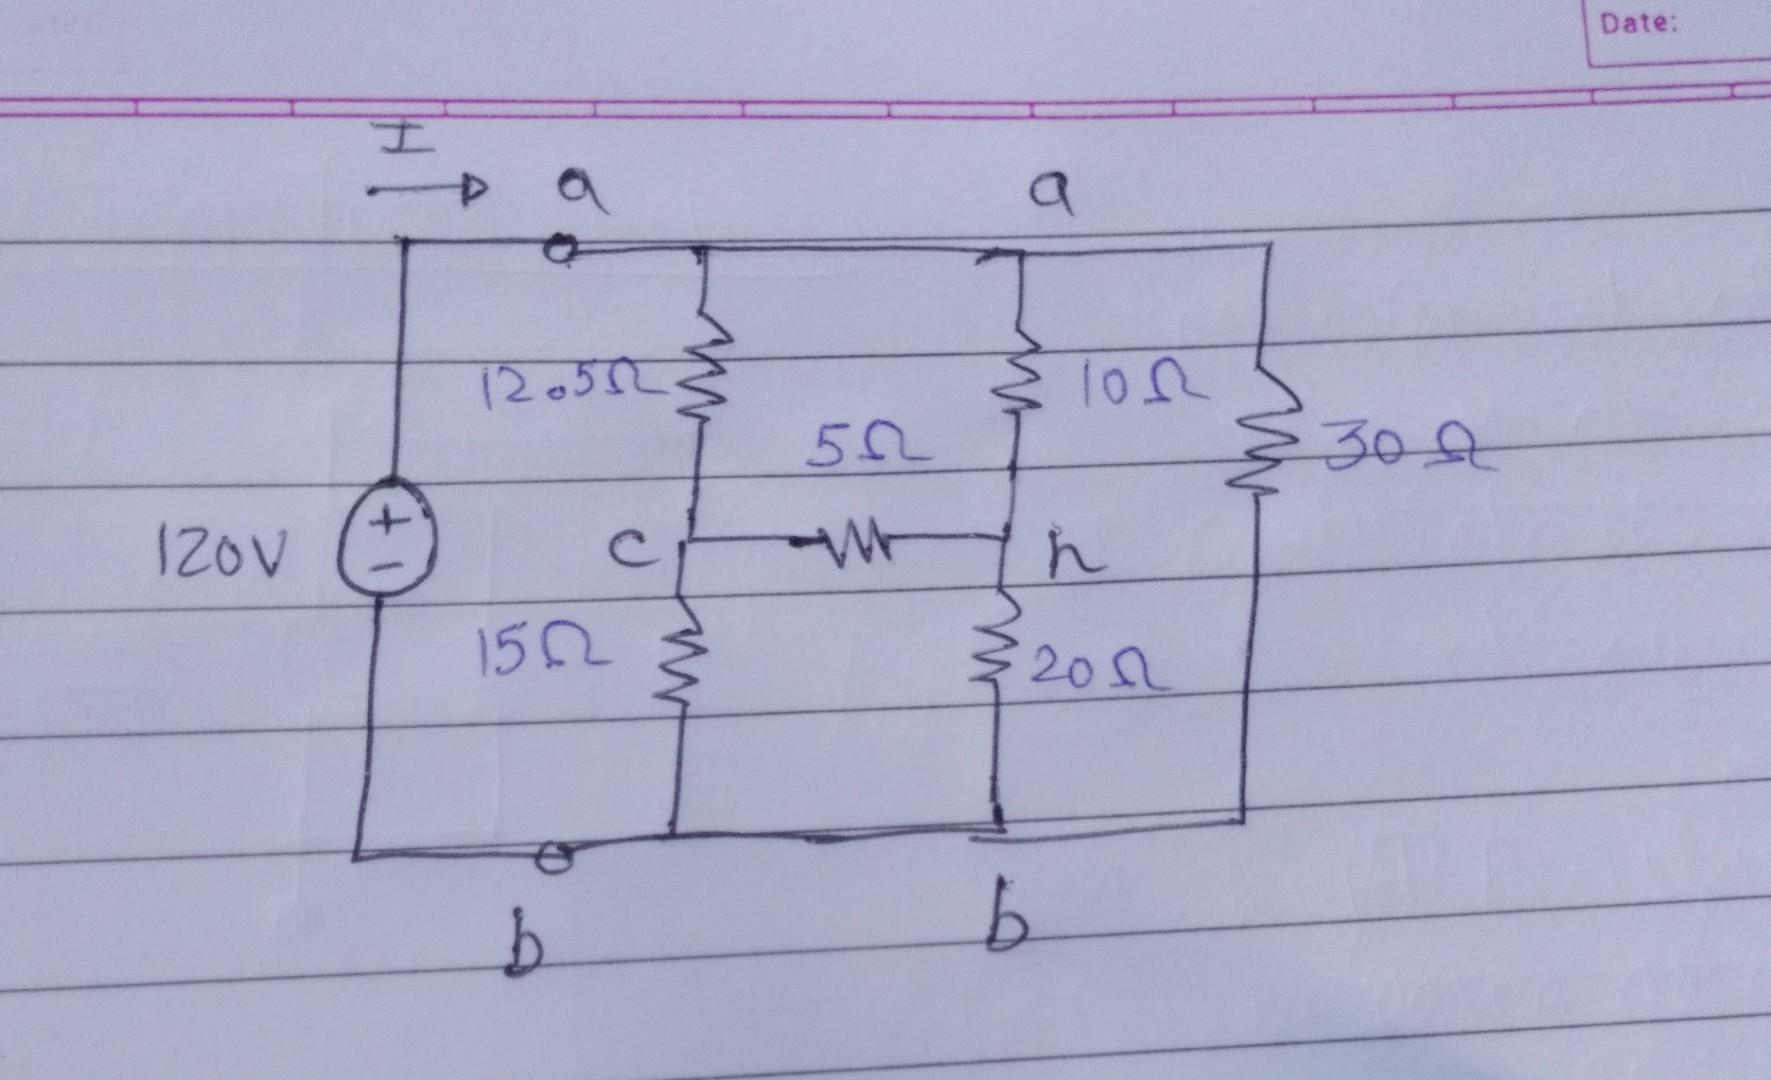 Date:
I
a
a
12.5Ω
10Ω
5Ω
30Ω
120V
+
-
c
n
15Ω
20Ω
b
b